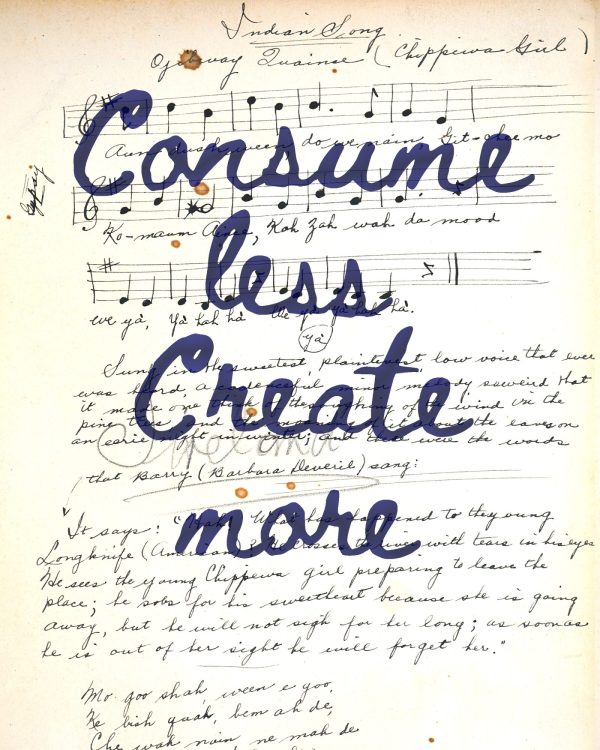 Indian Song
Ojibway Quainse (Chippewa Girl)
Consume
do we nain Git-chee mo
Gypsy
Ko-maum Kah Zah wah da mood
less
we yà, Yà hah hà We yà yà hah hà.
yà
Create
Sung in the sweetest, plaintivest, low voice that ever
was heard, a minor melody, so weird that
it made one think of the of the wind in the
pine trees and the about the eaves on
an eerie night in winter, and these were the words
that Barry (Barbara Deveril) sang:
more
It says: "What has happened to the young
Longknife (American)? He crosses the river with tears in his eyes
He sees the young Chippewa girl preparing to leave the
place; he sobs for his sweetheart because she is going
away, but he will not sigh for her long; as soon as
he is out of her sight he will forget her."
Mo goo shah, ween e goo,
Ke bish quah, bem ah de,
Che wah nain, ne mah de